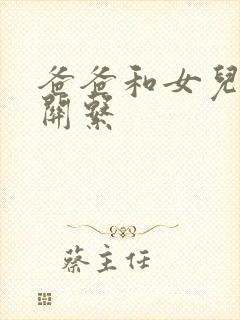 爸爸和女兒
關繫
蔡主任